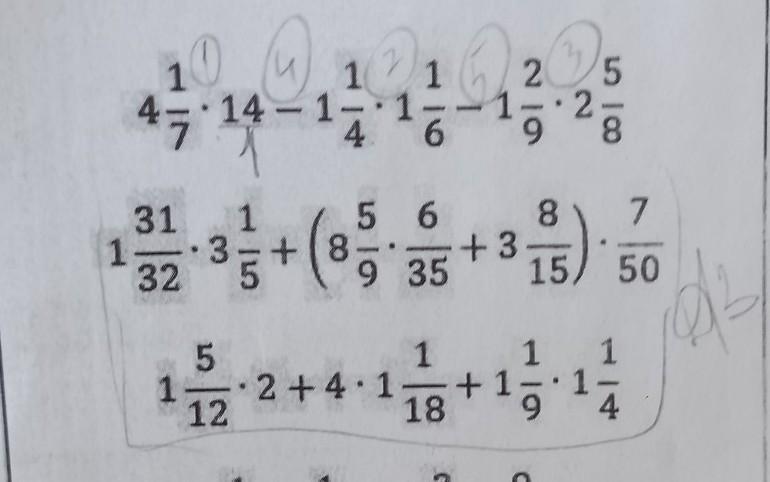 4 1/7 · 14 − 1 1/4 · 1 1/6 − 1 2/9 · 2 5/8
1 31/32 · 3 1/5 + (8 5/9 · 6/35 + 3 8/15) · 7/50
1 5/12 · 2 + 4 · 1 1/18 + 1 1/9 · 1 1/4